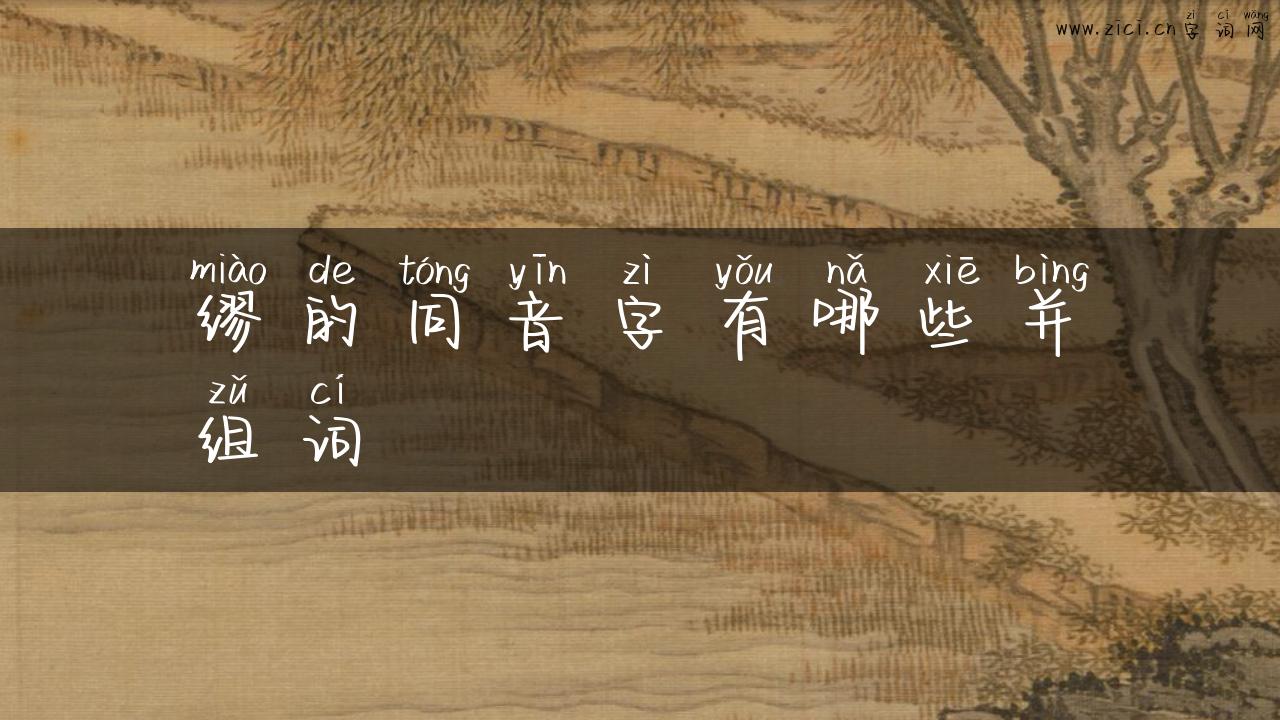 zì cí wǎng
www.zici.cn字词网
miào de tóng yīn zì yǒu nǎ xiē bìng
缪的同音字有哪些并
zǔ cí
组词